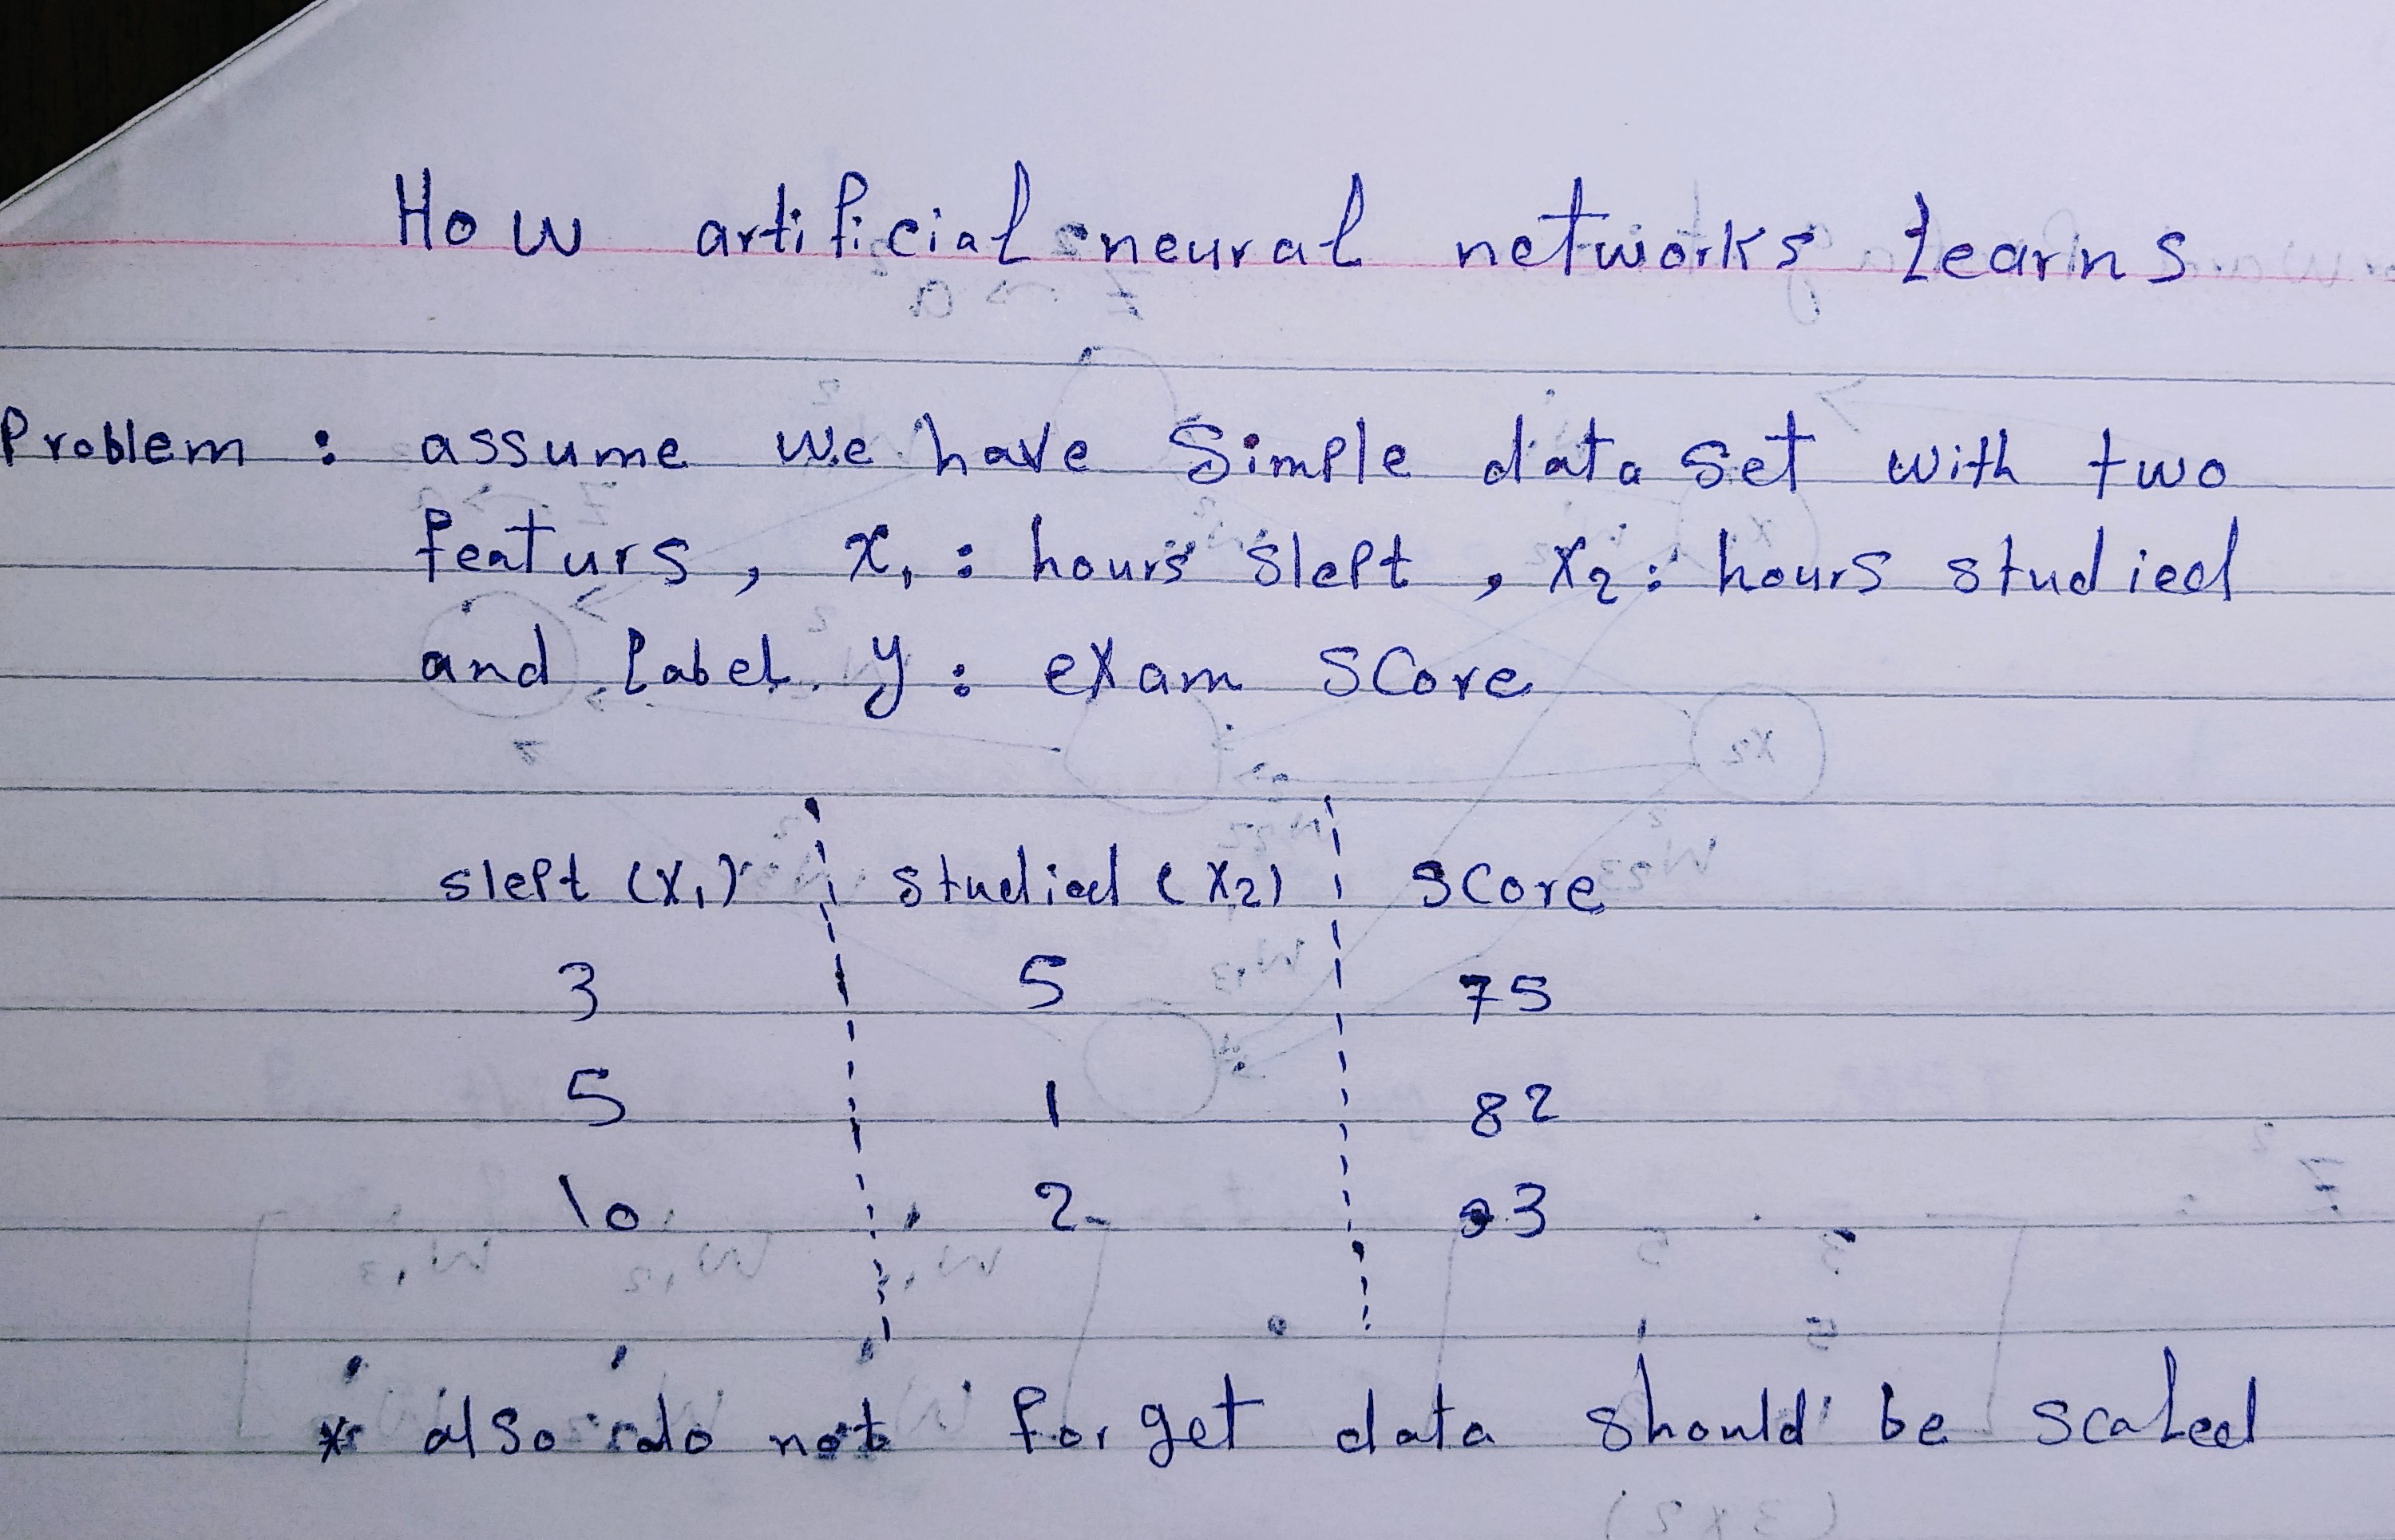 How artificial neural networks learns
Problem : assume we have simple data set with two
featurs , x1 : hours slept , x2 : hours studied
and label y : exam score
slept (x1) studied (x2) score
3 5 75
5 1 82
10 2 93
* also do not forget data should be scaled